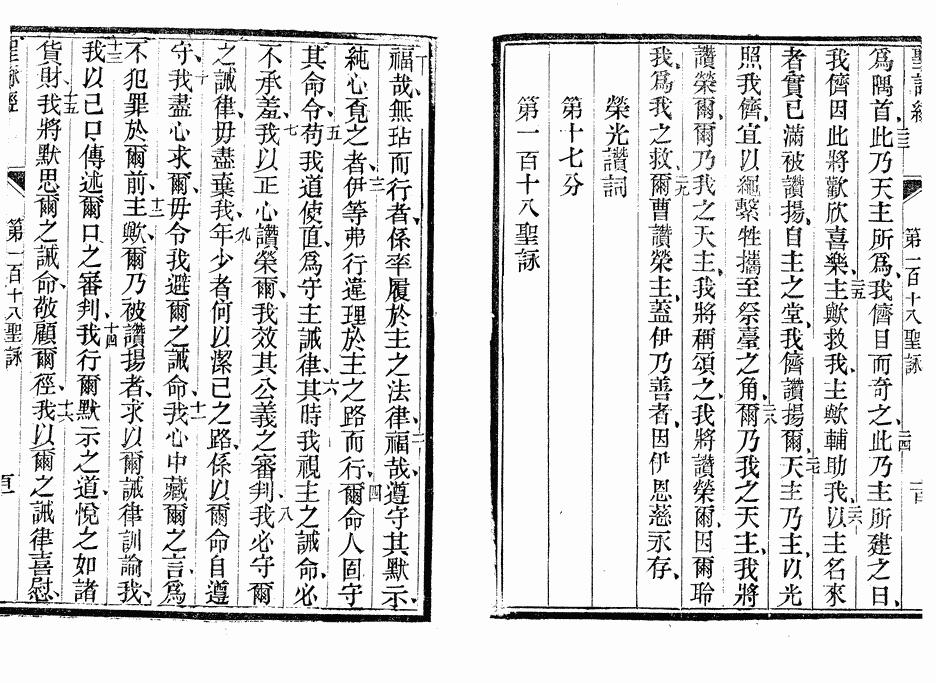 聖詠經
第一百十八聖詠
一百
爲隅首、此乃天主所爲、我儕目而奇之、此乃主所建之日、
二三
二四
我儕因此將歡欣喜樂、主歟救我、主歟輔助我、以主名來
二五
二六
者實已滿被讚揚、自主之堂、我儕讚揚爾、天主乃主、以光
二七
照我儕、宜以繩繫牲攜至祭臺之角、爾乃我之天主、我將
二八
讚榮爾、爾乃我之天主、我將稱頌之、我將讚榮爾、因爾聆
二九
我、爲我之救、爾曹讚榮主、蓋伊乃善者、因伊恩慈永存、
榮光讚詞
第十七分
第一百十八聖詠
一
福哉無玷而行者、係率履於主之法律、福哉遵守其默示
二
純心覔之者、伊等弗行違理於主之路而行、爾命人固守
三
四
其命令、苟我道使直、爲守主誡律、其時我視主之誡命、必
五
六
不承羞、我以正心讚榮爾、我效其公義之審判、我必守爾
七
八
之誡律、毋盡棄我、年少者何以潔己之路、係以爾命自遵
九
守、我盡心求爾、毋令我避爾之誡命、我心中藏爾之言、爲
十
十一
不犯罪於爾前、主歟、爾乃被讚揚者、求以爾誡律訓諭我、
十二
我以己口傳述爾口之審判、我行爾默示之道、悅之如諸
十三
十四
貨財、我將默思爾之誡命、敬顧爾徑、我以爾之誡律喜慰、
十五
十六
聖詠經
第一百十八聖詠